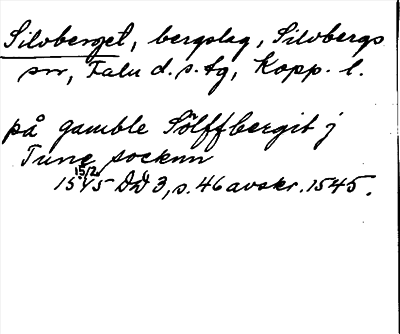 Silvberget, bergslag, Silvbergs
sn, Falu d.s. tg, Kopp. l.
på gamble Sölffbergit j
Tune socknn
15/2
1545 DD 3, s. 46 avskr. 1545.